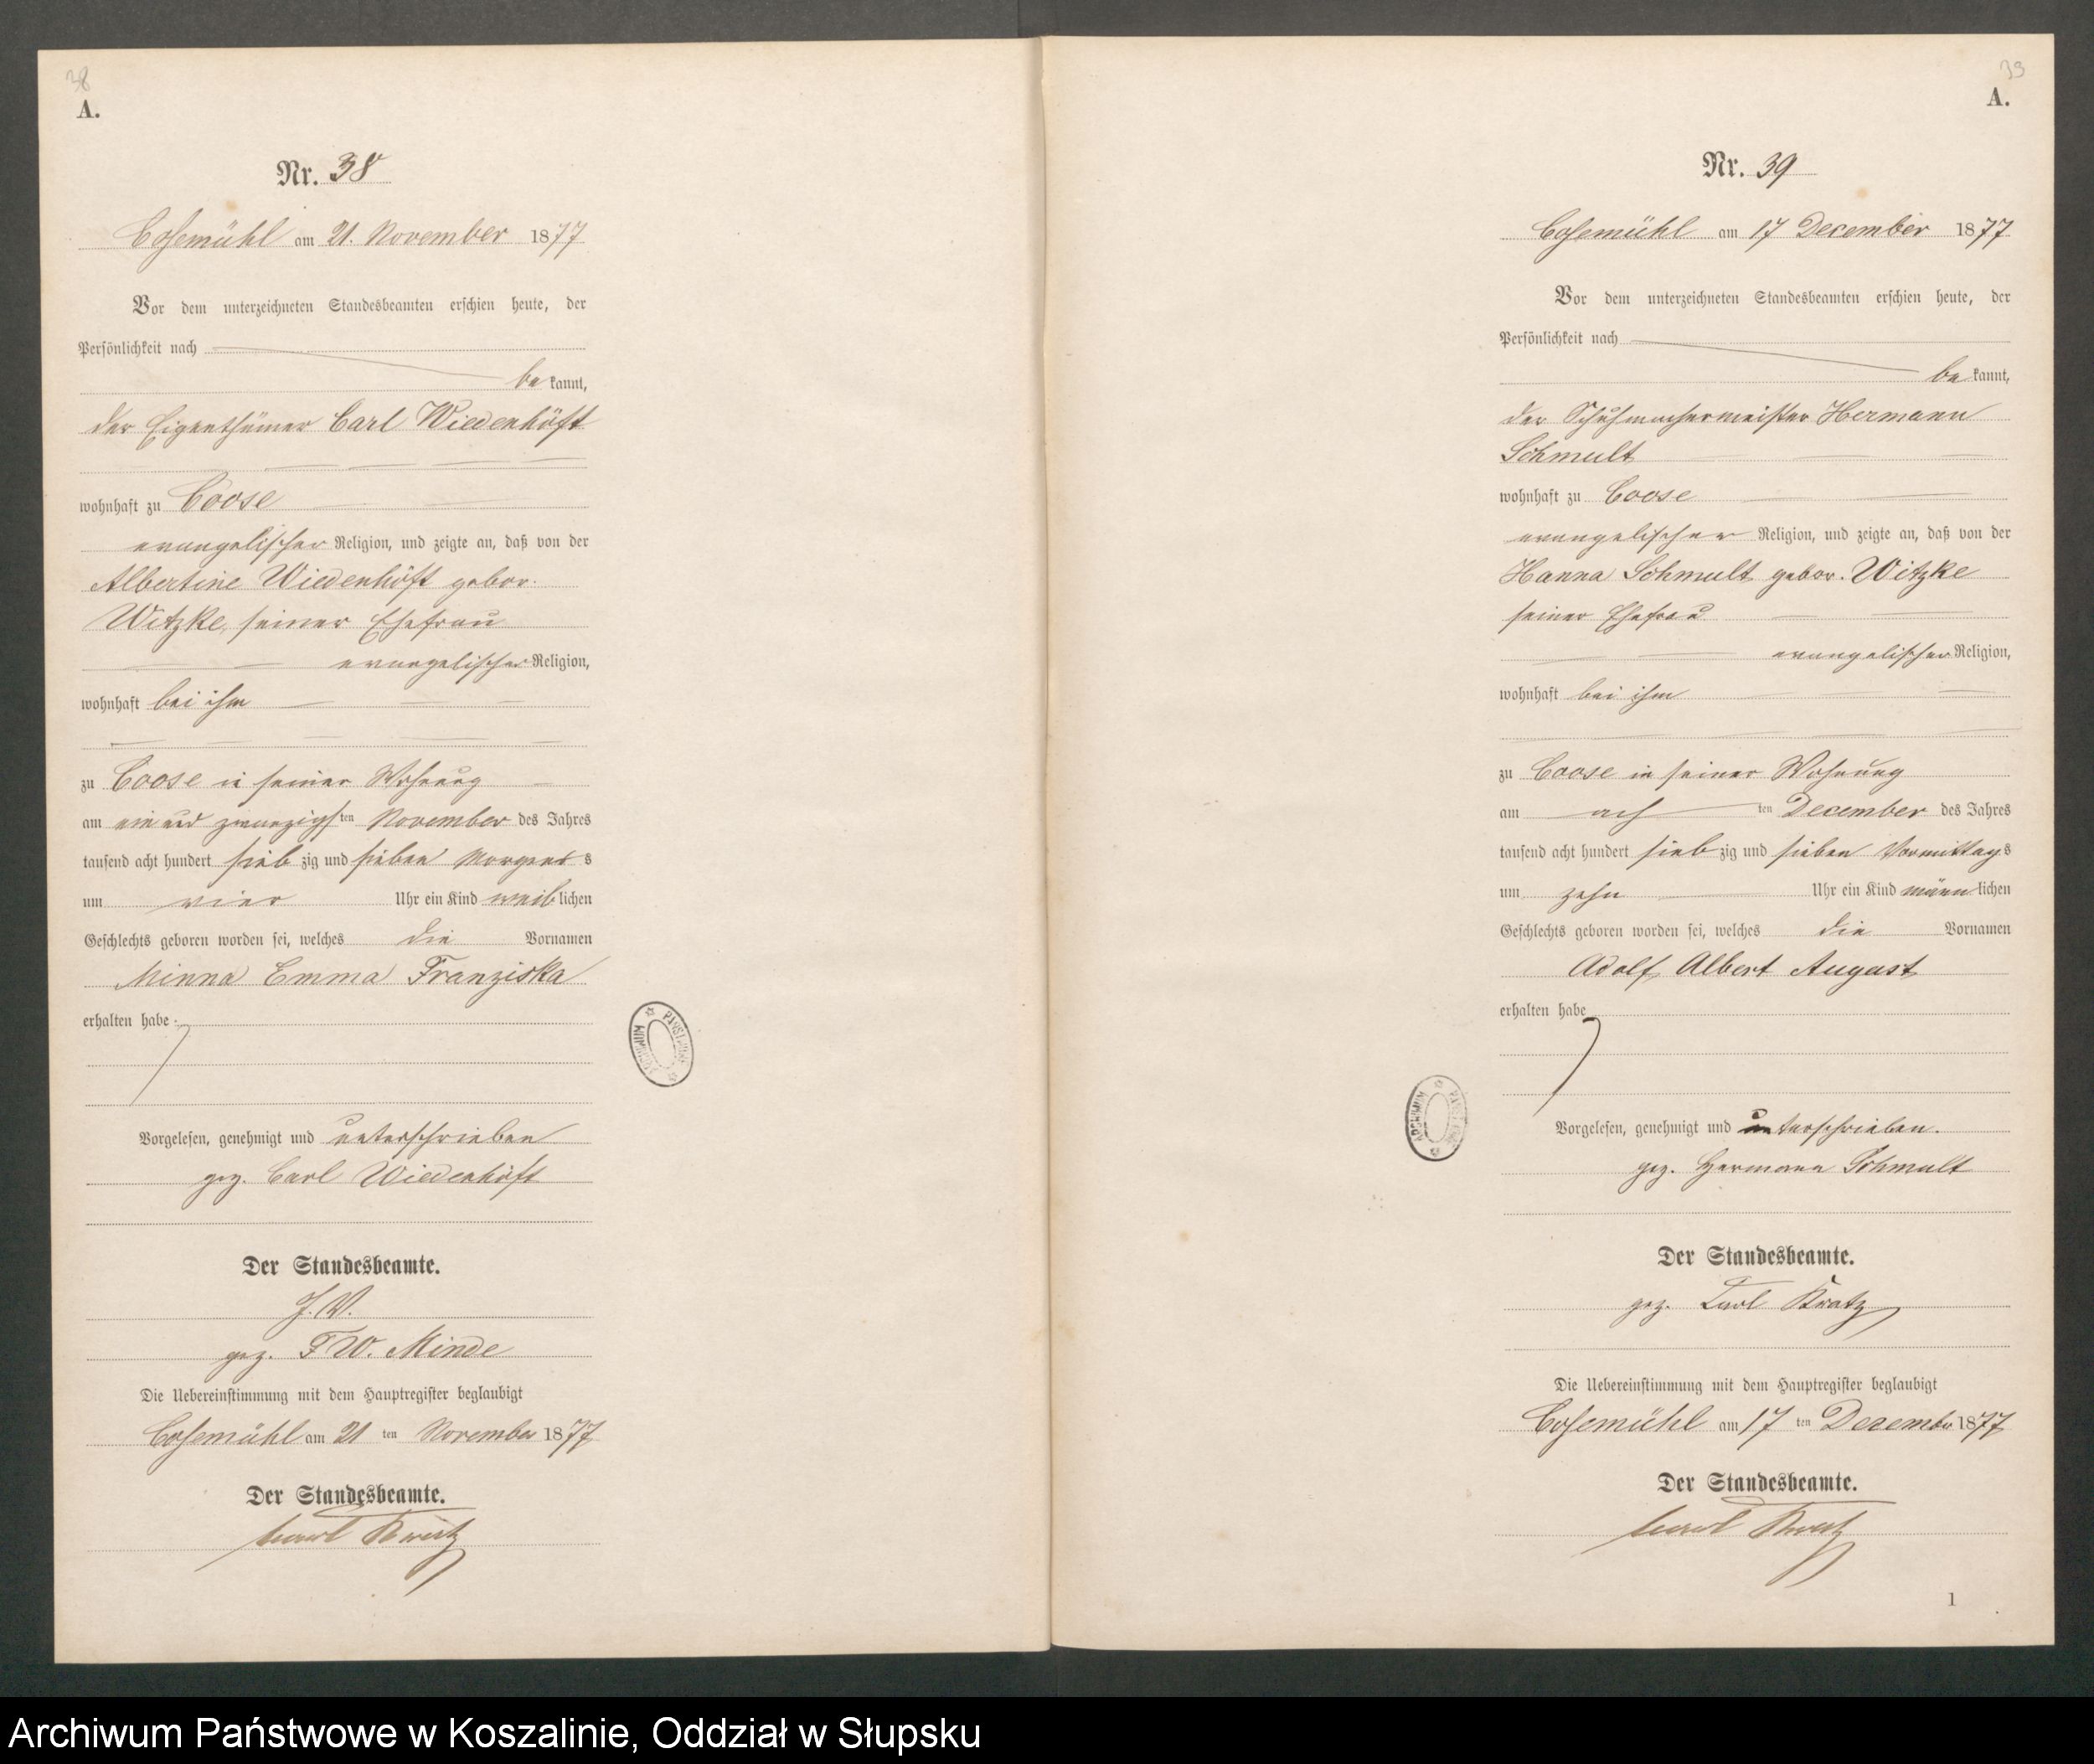 38
A.
Nr. 38
Cosemühl am 21. November 1877
Vor dem unterzeichneten Standesbeamten erschien heute, der
Persönlichkeit nach
be kannt,
der Eigenthümer Carl Wiedenhöft
wohnhaft zu Coose
evangelischer Religion, und zeigte an, daß von der
Albertine Wiedenhöft gebor.
Witzke, seiner Ehefrau
evangelischer Religion,
wohnhaft bei ihm
zu Coose in seiner Wohnung
am ein und zwanzigsten November des Jahres
tausend acht hundert sieb zig und sieben Morgens
um vier Uhr ein Kind weiblichen
Geschlechts geboren worden sei, welches die Vornamen
Minna Emma Franziska
erhalten habe.
Vorgelesen, genehmigt und unterschrieben
gez. Carl Wiedenhöft
Der Standesbeamte.
J. V.
gez. F W. Minde
Die Uebereinstimmung mit dem Hauptregister beglaubigt
Cosemühl am 21 ten November 1877
Der Standesbeamte.
Carl Kratz
ARCHIWUM PAŃSTWOWE
39
A.
Nr. 39
Cosemühl am 17 December 1877
Vor dem unterzeichneten Standesbeamten erschien heute, der
Persönlichkeit nach
be kannt,
der Schuhmachermeister Hermann
Schmult
wohnhaft zu Coose
evangelischer Religion, und zeigte an, daß von der
Hanna Schmult gebor. Witzke
seiner Ehefrau
evangelischer Religion,
wohnhaft bei ihm
zu Coose in seiner Wohnung
am ach ten December des Jahres
tausend acht hundert sieb zig und sieben Vormittags
um zehn Uhr ein Kind männlichen
Geschlechts geboren worden sei, welches die Vornamen
Adolf, Albert August
erhalten habe
Vorgelesen, genehmigt und unterschrieben.
gez. Hermann Schmult
Der Standesbeamte.
gez. Carl Kratz
Die Uebereinstimmung mit dem Hauptregister beglaubigt
Cosemühl am 17 ten Dezember 1877
Der Standesbeamte.
Carl Kratz
1
ARCHIWUM PAŃSTWOWE
Archiwum Państwowe w Koszalinie, Oddział w Słupsku